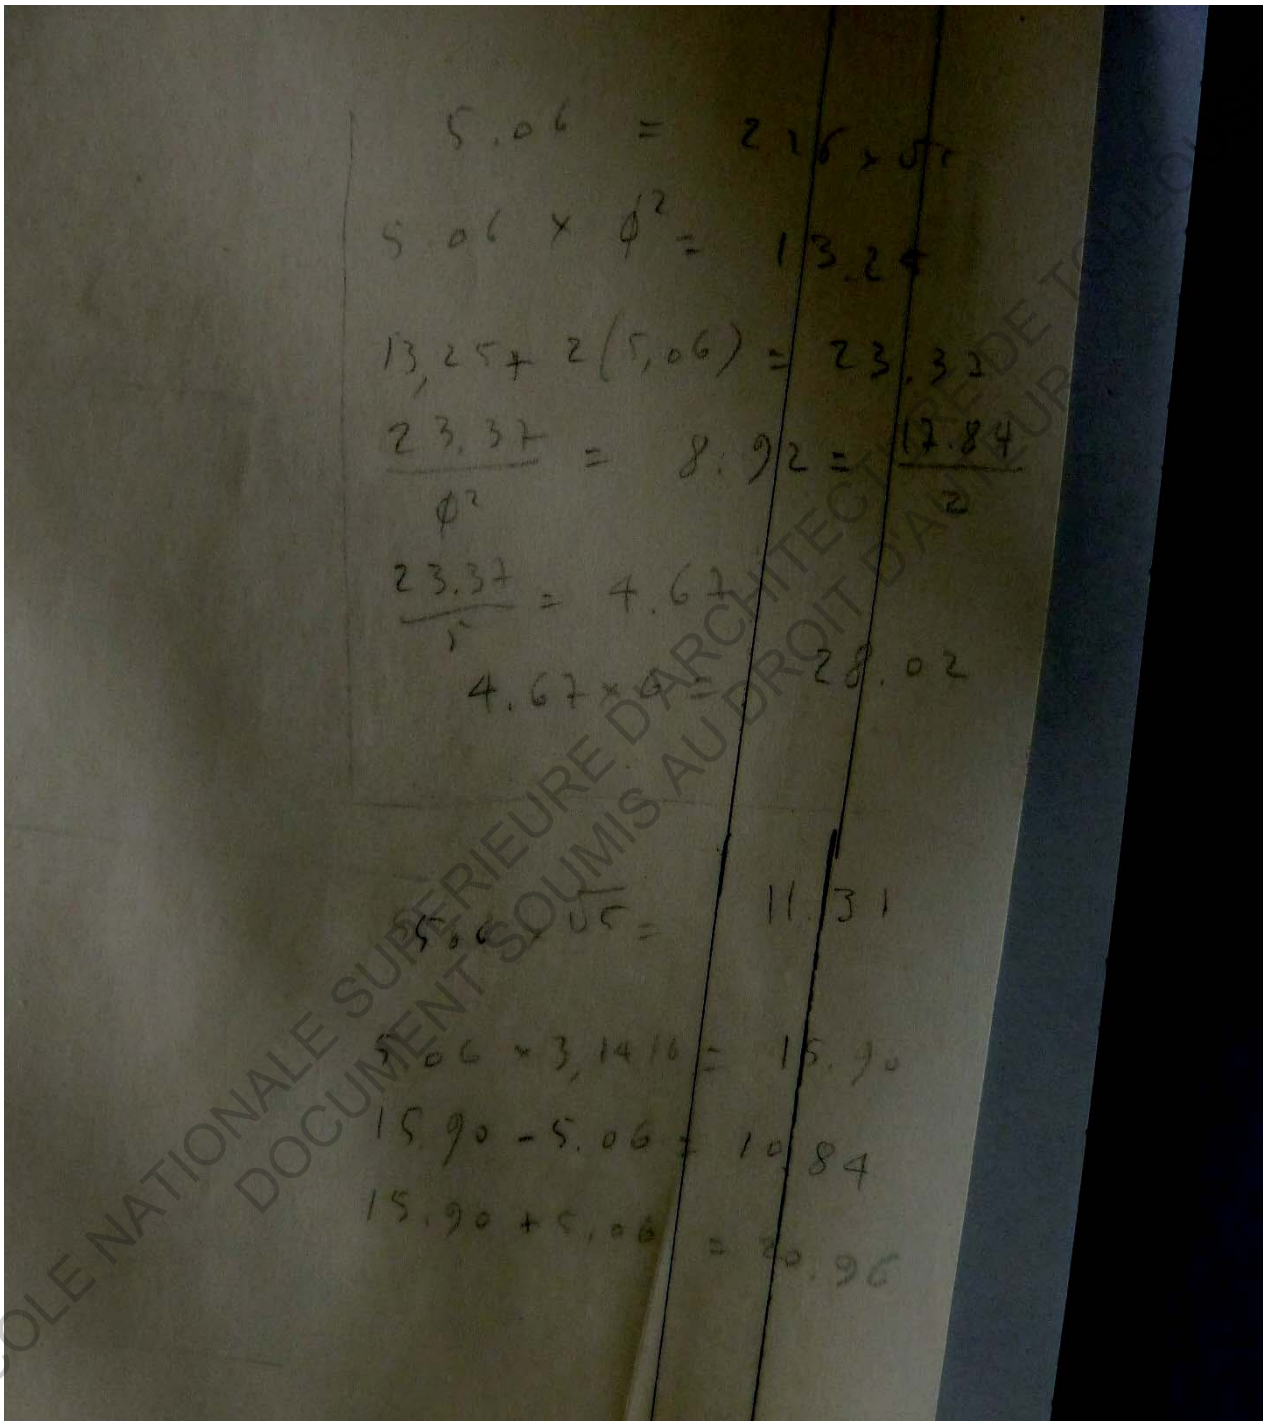 5.06 = 2.26 × √5
5.06 × ϕ² = 13.25
13,25 + 2(5,06) = 23.37
23.37 / ϕ² = 8.92 = 17.84 / 2
23.37 / 5 = 4.67
4.67 × 6 = 28.02
5.06 × √5 = 11.31
5.06 × 3,1416 = 15.90
15.90 - 5.06 = 10.84
15.90 + 5.06 = 20.96
ECOLE NATIONALE SUPERIEURE D'ARCHITECTURE DE TOULOUSE
DOCUMENT SOUMIS AU DROIT D'AUTEUR